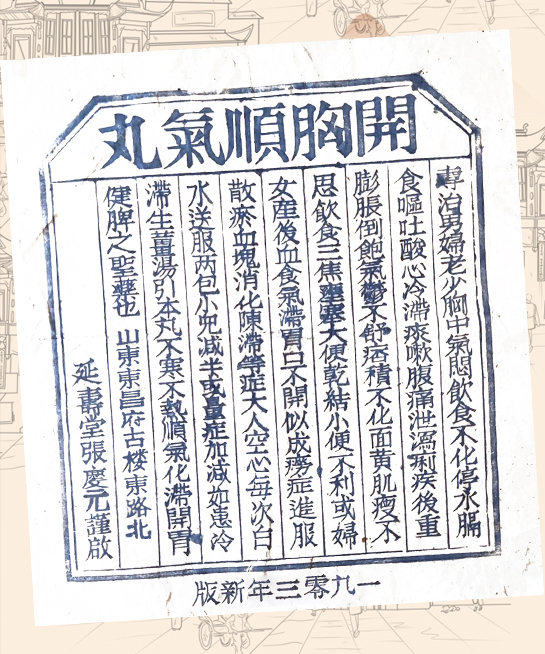 開胸順氣丸
專治男婦老少胸中氣悶飲食不化停水膈
食嘔吐酸心冷滯痰嗽腹痛泄瀉痢疾後重
膨脹倒飽氣鬱不舒痞積不化面黃肌瘦不
思飲食三焦壅塞大便乾結小便不利或婦
女産後血食氣滯胃口不開似成癆症進服
散瘀血塊消化陳滯等症大人空心每次白
水送服两包小児减半或量症加减如患冷
滯生薑湯引本丸不寒不熱順氣化滯開胃
健脾之聖藥也 山東東昌府古楼東路北
延壽堂張慶元謹啟
一九零三年新版